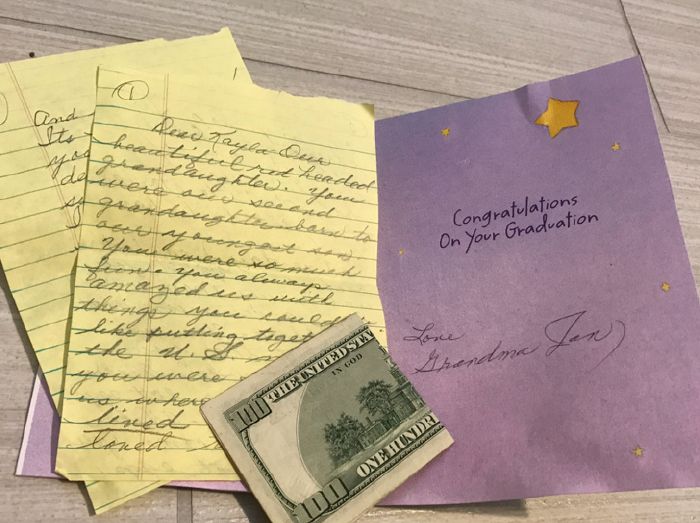 And
Its
you
de
1
Dear Kayla - Our
beautiful red headed
grandaughter. You
were our second
grandaughter born to
our youngest son
You were so much
fun. You always
amazed us with
things you could
like putting toget
the U.S
you were
us where
lived
loved
Congratulations
On Your Graduation
Love
Grandma Jan
100
THE UNITED STA
IN GOD
ONE HUNDR
100